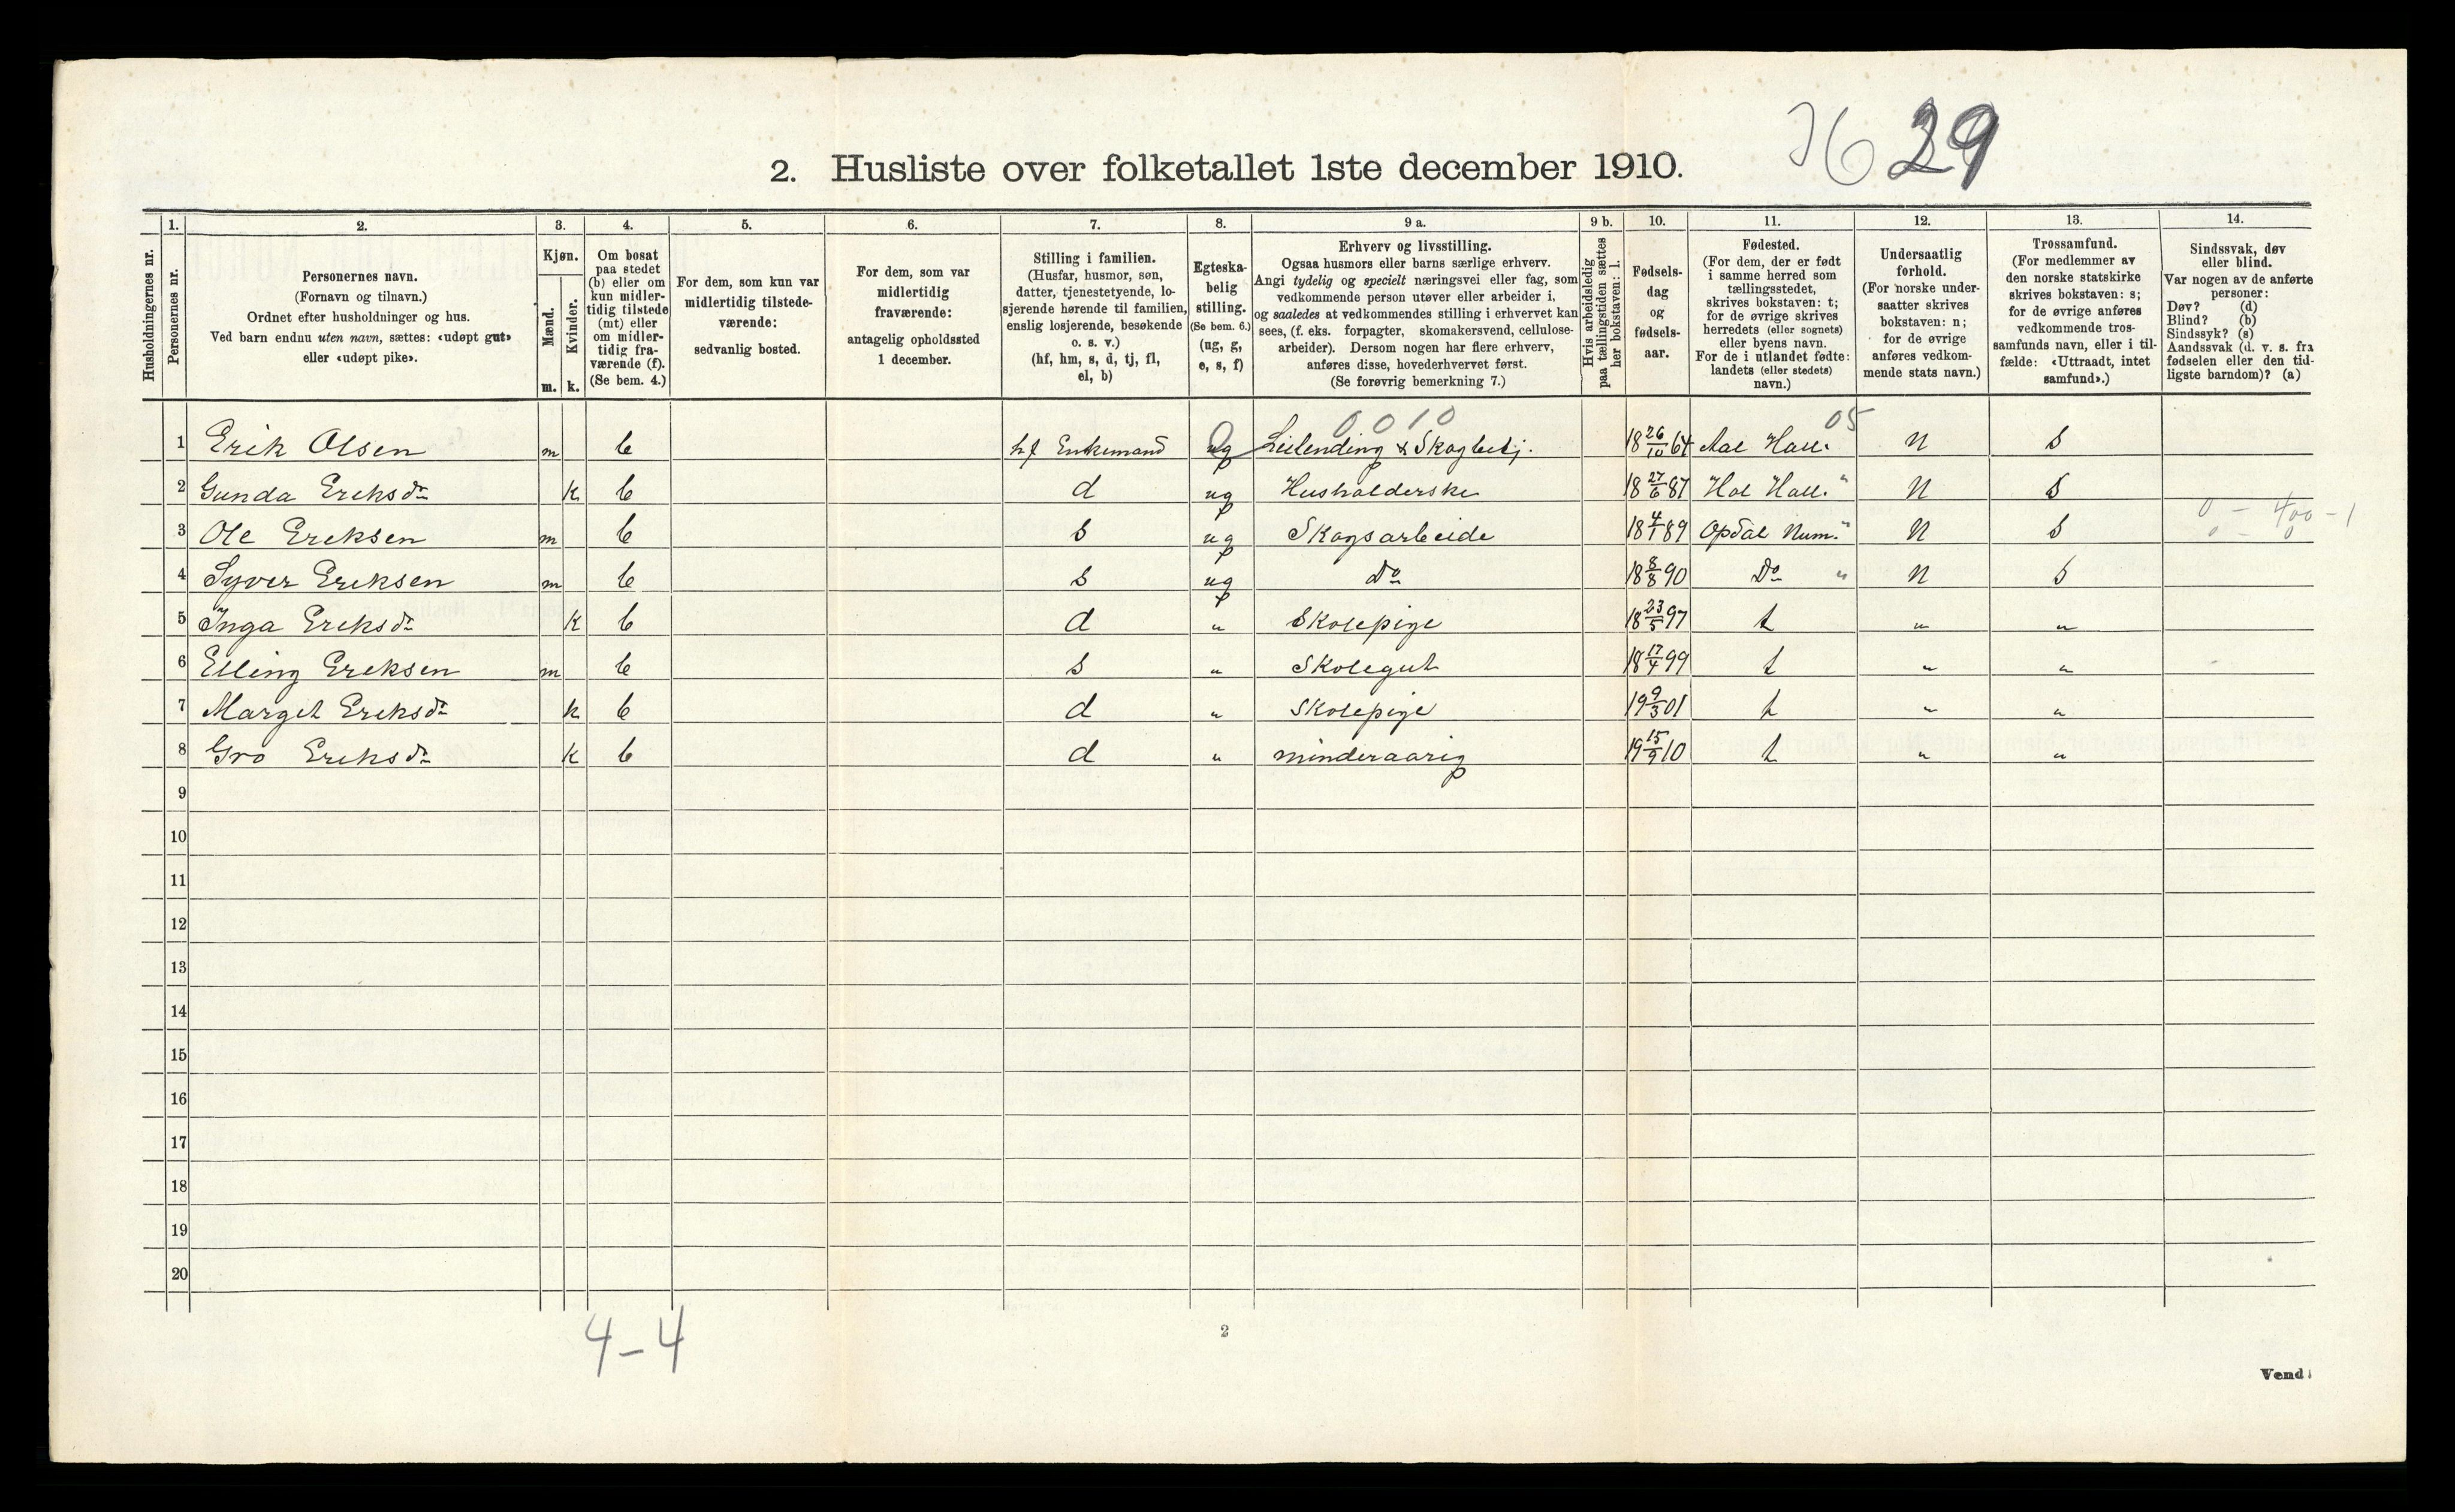 29
2. Husliste over folketallet 1ste december 1910.
Husholdningernes nr.
1. Personernes nr.
2. Personernes navn.
(Fornavn og tilnavn.)
Ordnet efter husholdninger og hus.
Ved barn endnu uten navn, sættes: «udøpt gut»
eller «udøpt pike».
3. Kjøn.
Mænd. m.
Kvinder. k.
4. Om bosat
paa stedet
(b) eller om
kun midler-
tidig tilstede
(mt) eller
om midler-
tidig fra-
værende (f).
(Se bem. 4.)
5. For dem, som kun var
midlertidig tilstede-
værende:
sedvanlig bosted.
6. For dem, som var
midlertidig
fraværende:
antagelig opholdssted
1 december.
7. Stilling i familien.
(Husfar, husmor, søn,
datter, tjenestetyende, lo-
sjerende hørende til familien,
enslig losjerende, besøkende
o. s. v.)
(hf, hm, s, d, tj, fl,
el, b)
8. Egteska-
belig
stilling.
(Se bem. 6.)
(ug, g,
e, s, f)
9 a. Erhverv og livsstilling.
Ogsaa husmors eller barns særlige erhverv.
Angi tydelig og specielt næringsvei eller fag, som
vedkommende person utøver eller arbeider i,
og saaledes at vedkommendes stilling i erhvervet kan
sees, (f. eks. forpagter, skomakersvend, cellulose-
arbeider). Dersom nogen har flere erhverv,
anføres disse, hovederhvervet først.
(Se forøvrig bemerkning 7.)
9 b. Hvis arbeidsledig
paa tællingstiden sættes
her bokstaven: l.
10. Fødsels-
dag
og
fødsels-
aar.
11. Fødested.
(For dem, der er født
i samme herred som
tællingsstedet,
skrives bokstaven: t;
for de øvrige skrives
herredets (eller sognets)
eller byens navn.
For de i utlandet fødte:
landets (eller stedets)
navn.)
12. Undersaatlig
forhold.
(For norske under-
saatter skrives
bokstaven: n;
for de øvrige
anføres vedkom-
mende stats navn.)
13. Trossamfund.
(For medlemmer av
den norske statskirke
skrives bokstaven: s;
for de øvrige anføres
vedkommende tros-
samfunds navn, eller i til-
fælde: «Uttraadt, intet
samfund».)
14. Sindssvak, døv
eller blind.
Var nogen av de anførte
personer:
Døv? (d)
Blind? (b)
Sindssyk? (s)
Aandssvak (d. v. s. fra
fødselen eller den tid-
ligste barndom)? (a)
0 0 1 0 05
1 Erik Olsen m b hf Enkemand ug Leilending & Skogbetj. 18 26/10 64 Aal Hall. N S
2 Gunda Ereksdr k b d ug Husholderske 18 27/6 87 Hol Hall. " N S
0 - 400 - 1
3 Ole Ereksen m b s ug Skogsarbeide 18 4/1 89 Opdal Num. " N S 0 - 0
4 Syver Ereksen m b s ug Do 18 8/8 90 Do " N S
5 Inga Ereksdr k b d " Skolepige 18 23/5 97 t " "
6 Elling Ereksen m b s " Skolegut 18 17/4 99 t " "
7 Margit Ereksdr k b d " Skolepige 19 9/3 01 t " "
8 Gro Ereksdr k b d " minderaarig 19 15/9 10 t " "
9
10
11
12
13
14
15
16
17
18
19
20
4-4
2
Vend